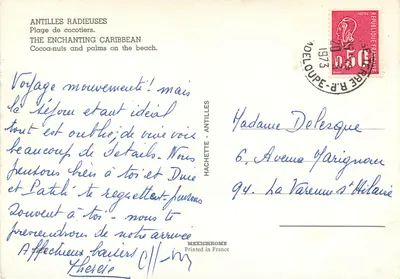 ANTILLES RADIEUSES
Plage de cocotiers.
THE ENCHANTING CARIBBEAN
Cocoa-nuts and palms on the beach.
Voyage mouvementé! mais
le séjour étant idéal
tout est oublié, de vive voix
beaucoup de détails. Nous
pensons bien à toi et
et te regrettent pensons
souvent à toi - nous te
préviendrons de notre arrivée
Affectueux baisers
Thérèse
HACHETTE - ANTILLES
MEXICHROME
Printed in France
REPUBLIQUE FRANCAISE
0,50
1973
Madame Delesque
6, Avenue Marignan
94. La Varenne St Hilaire